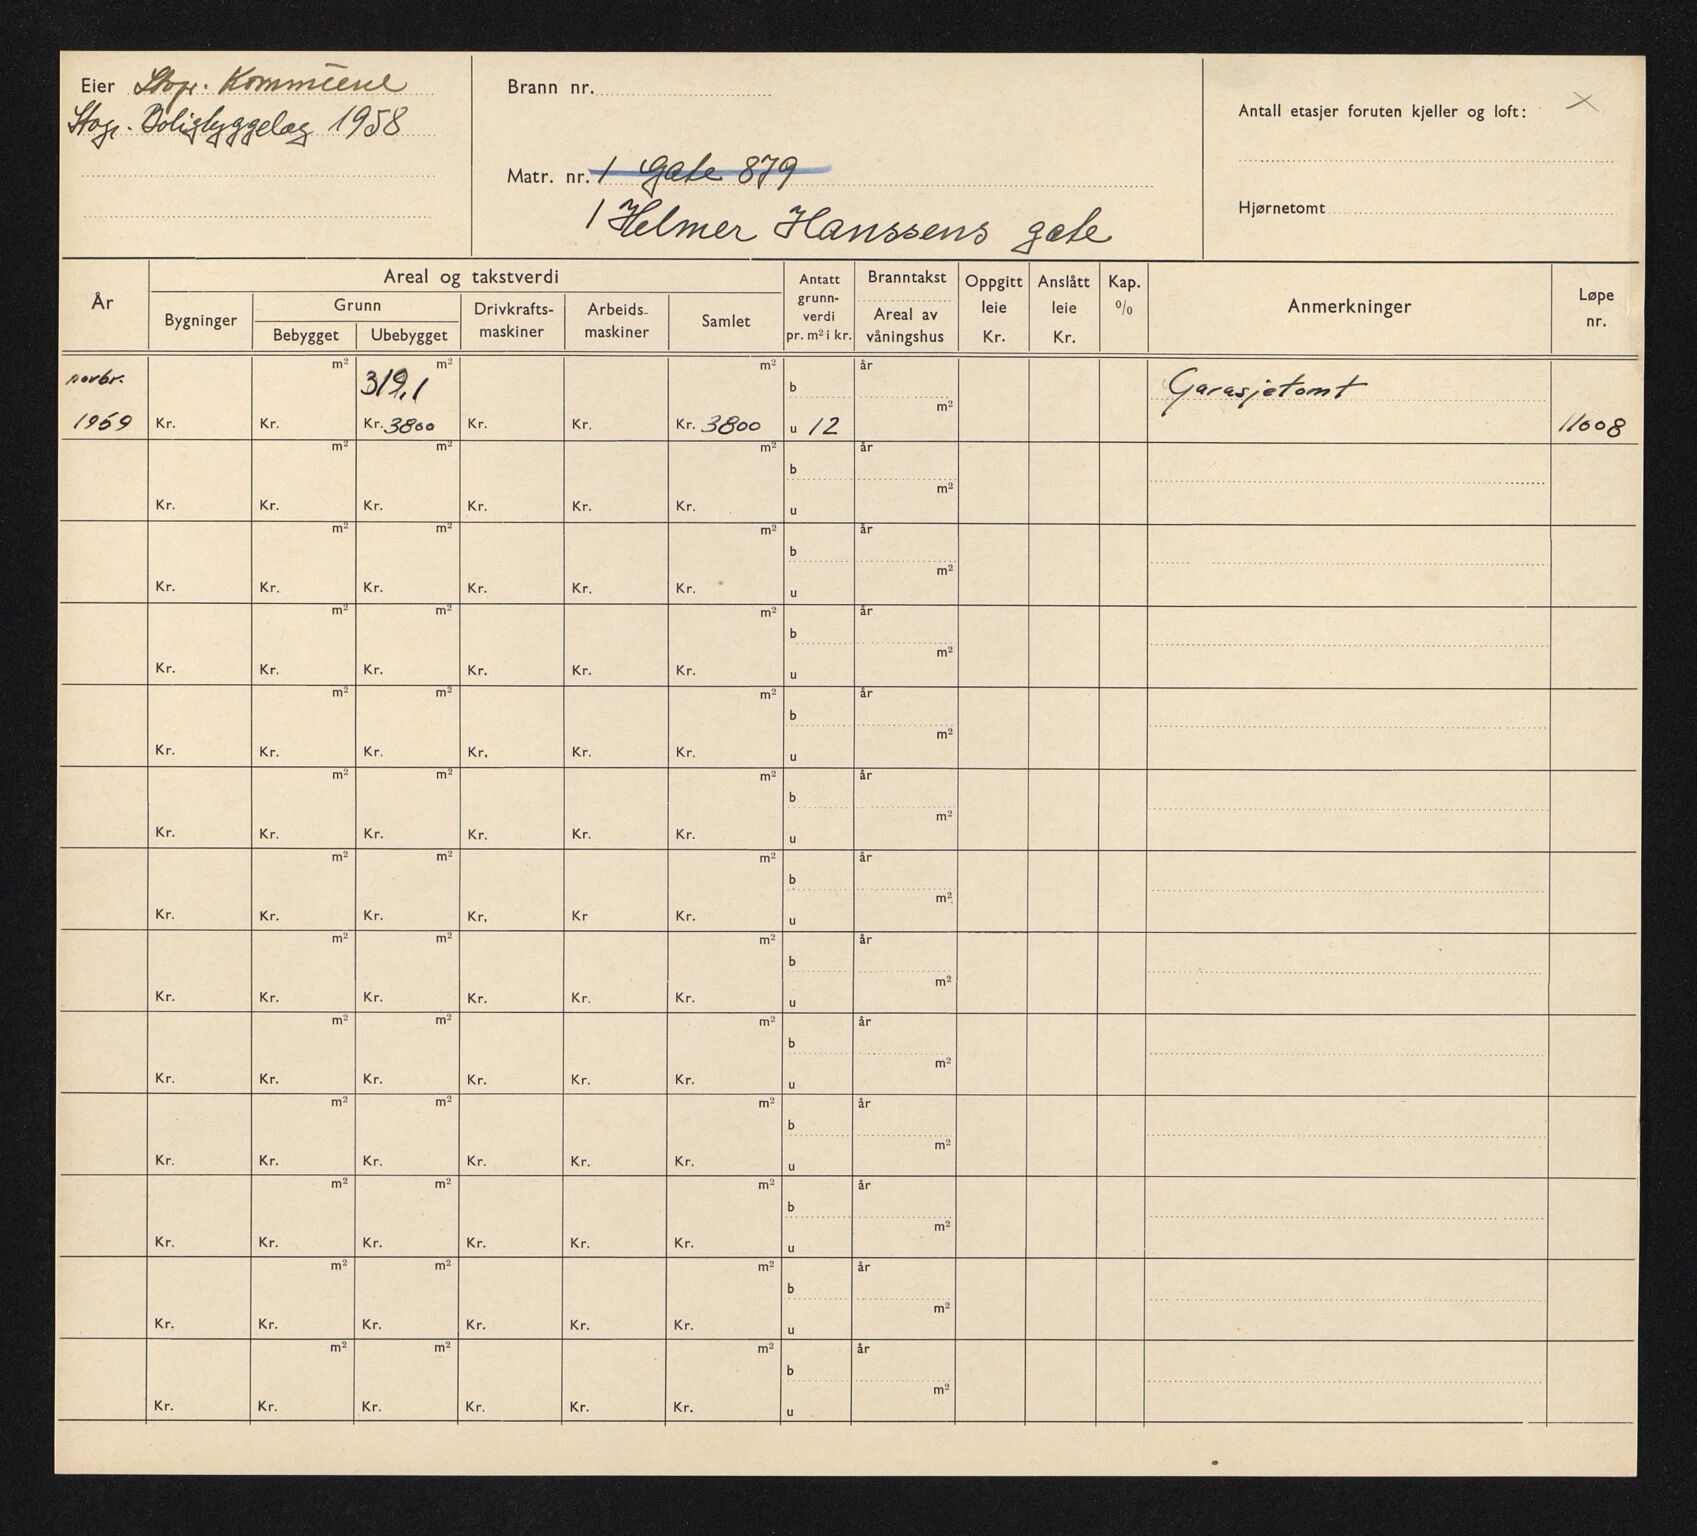 Eier Stvgr. Kommune
Stvgr. Boligbyggelag 1958
Brann nr.
Matr. nr. 1 Gate 879
1 Helmer Hanssens gate
Antall etasjer foruten kjeller og loft: X
Hjørnetomt
År
Areal og takstverdi
Bygninger
Grunn
Bebygget Ubebygget
Drivkrafts-
maskiner
Arbeids-
maskiner
Samlet
Antatt
grunn-
verdi
pr. m² i kr.
Branntakst
Areal av
våningshus
Oppgitt
leie
Kr.
Anslått
leie
Kr.
Kap.
%
Anmerkninger
Løpe
nr.
novbr. m² m² m² år
319,1 b Garasjetomt
m²
1959 Kr. Kr. Kr. 3800 Kr. Kr. Kr. 3800 u 12 11008
m² m² m² år
b
m²
Kr. Kr. Kr. Kr. Kr. Kr. u
m² m² m² år
b
m²
Kr. Kr. Kr. Kr. Kr. Kr. u
m² m² m² år
b
m²
Kr. Kr. Kr. Kr. Kr. Kr. u
m² m² m² år
b
m²
Kr. Kr. Kr. Kr. Kr. Kr. u
m² m² m² år
b
m²
Kr. Kr. Kr. Kr. Kr. Kr. u
m² m² m² år
b
m²
Kr. Kr. Kr. Kr. Kr Kr. u
m² m² m² år
b
m²
Kr. Kr. Kr. Kr. Kr. Kr. u
m² m² m² år
b
m²
Kr. Kr. Kr. Kr. Kr. Kr. u
m² m² m² år
b
m²
Kr. Kr. Kr. Kr. Kr. Kr. u
m² m² m² år
b
m²
Kr. Kr. Kr. Kr. Kr. Kr. u
m² m² m² år
b
m²
Kr. Kr. Kr. Kr. Kr. Kr. u
m² m² m² år
b
m²
Kr. Kr. Kr. Kr. Kr. Kr. u